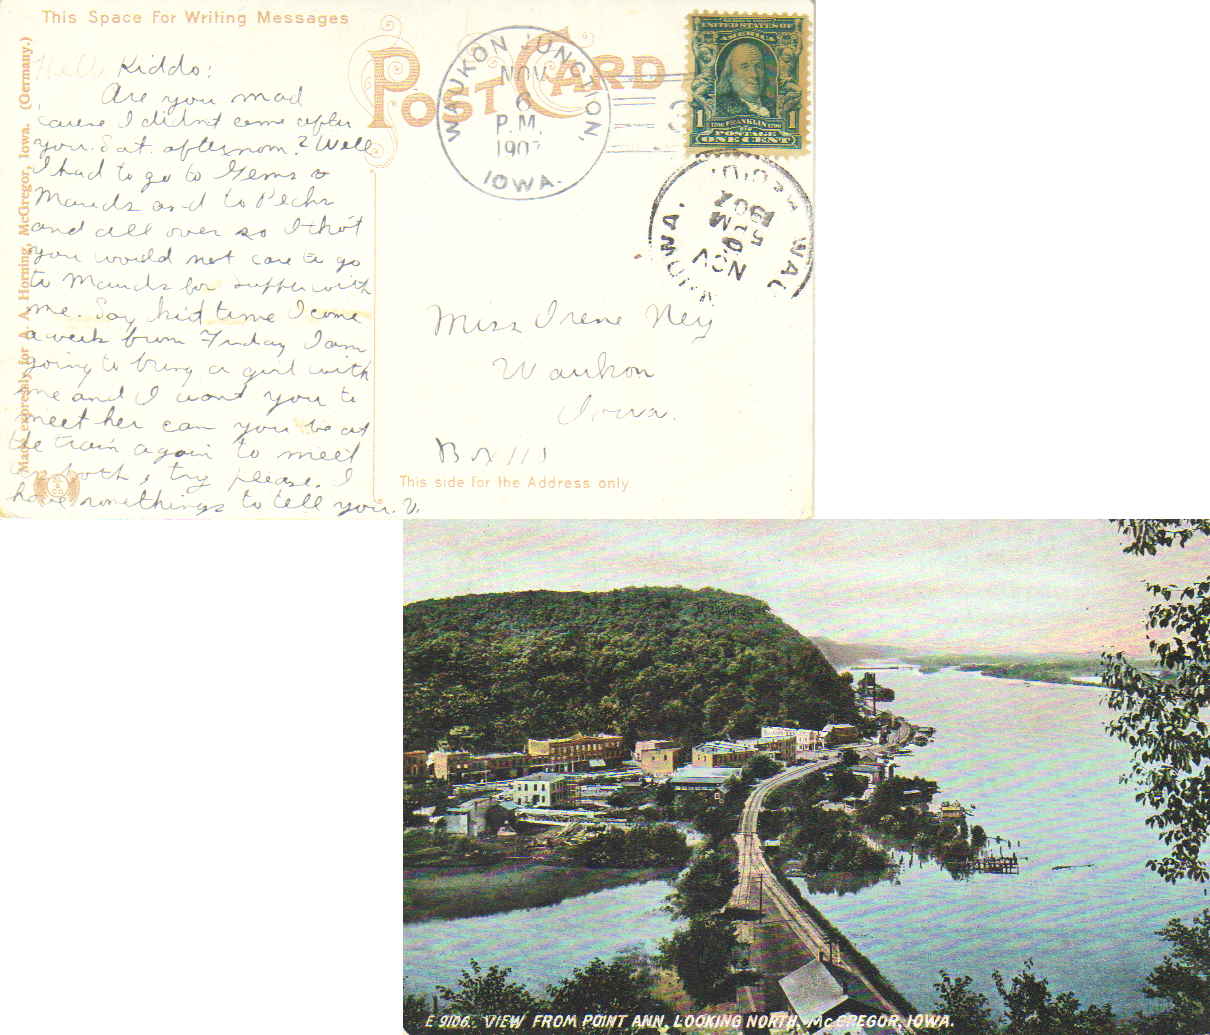 This Space For Writing Messages
POST CARD
Made expressly for A. A. Horning, McGregor, Iowa. (Germany.)
Hello Kiddo:
Are you mad
'cause I didn't come after
you Sat. afternoon? Well
I had to go to Gems &
Mauds and to Pechs
and all over so I thot
you would not care to go
to Mauds for supper with
me. Say kid time I come
a week from Friday I am
going to bring a girl with
me and I want you to
meet her can you be at
the train again to meet
us both, try please. I
have somethings to tell you. V.
WAUKON JUNCTION,
NOV
6
P.M.
190
IOWA.
SERIES 1902
UNITED STATES OF
AMERICA
1706 FRANKLIN 1790
1 POSTAGE 1
ONE CENT
NOV
IOWA.
Miss Irene Ney
Waukon
Iowa.
Box 111
This side for the Address only
E 9106. VIEW FROM POINT ANN, LOOKING NORTH, McGREGOR, IOWA.